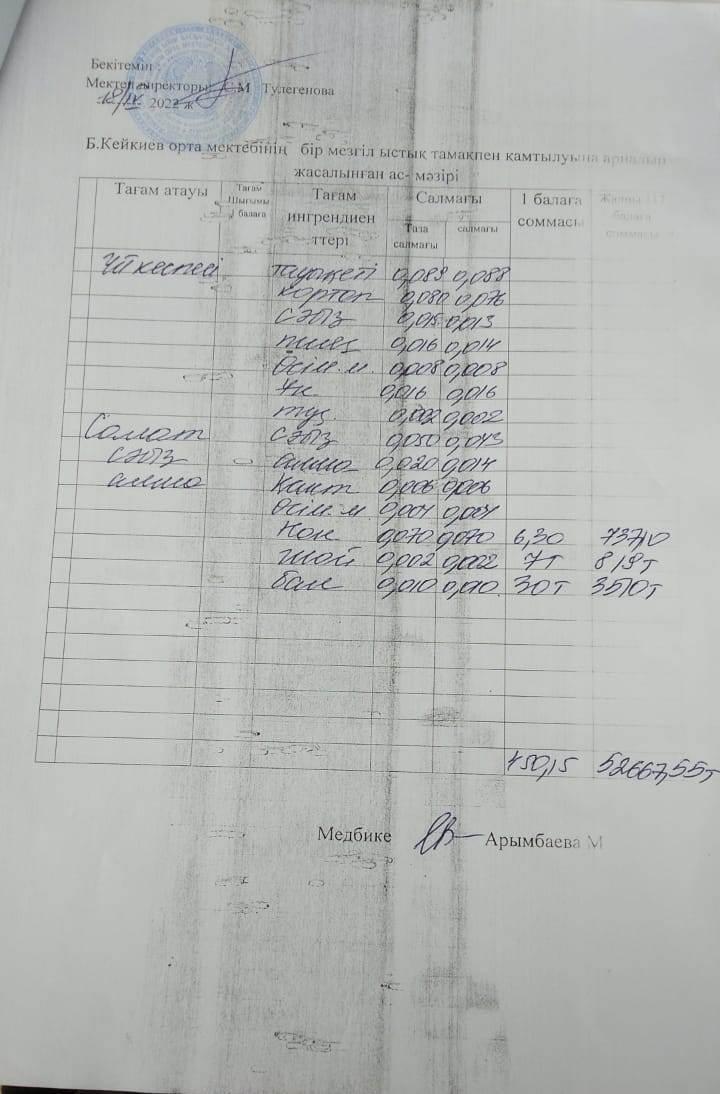 Бекітемін
Мектеп директоры С М Тулегенова
2022 ж
Б.Кейкиев орта мектебінің бір мезгіл ыстық тамақпен қамтылуына арналып
жасалынған ас- мәзірі
Тағам атауы Тағам Шығымы 1 балаға Тағам ингрендиенттері Салмағы 1 балаға соммасы Жалпы 117 балаға соммасы
Таза салмағы салмағы
Үй кеспесі тауық еті 0,089 0,088
картоп 0,080 0,076
сәбіз 0,015 0,013
пияз 0,016 0,014
Өсім.м. 0,008 0,008
Ұн 0,016 0,016
тұз 0,002 0,002
Салат сәбіз 0,050 0,043
сәбіз алма 0,020 0,014
алма Қант 0,006 0,006
Өсім.м 0,004 0,004
Нан 0,070 0,070 6,30 737,10
шай 0,002 0,002 7т 819т
бал 0,010 0,010 30т 3510т
450,15 52667,55т
Медбике Арымбаева М